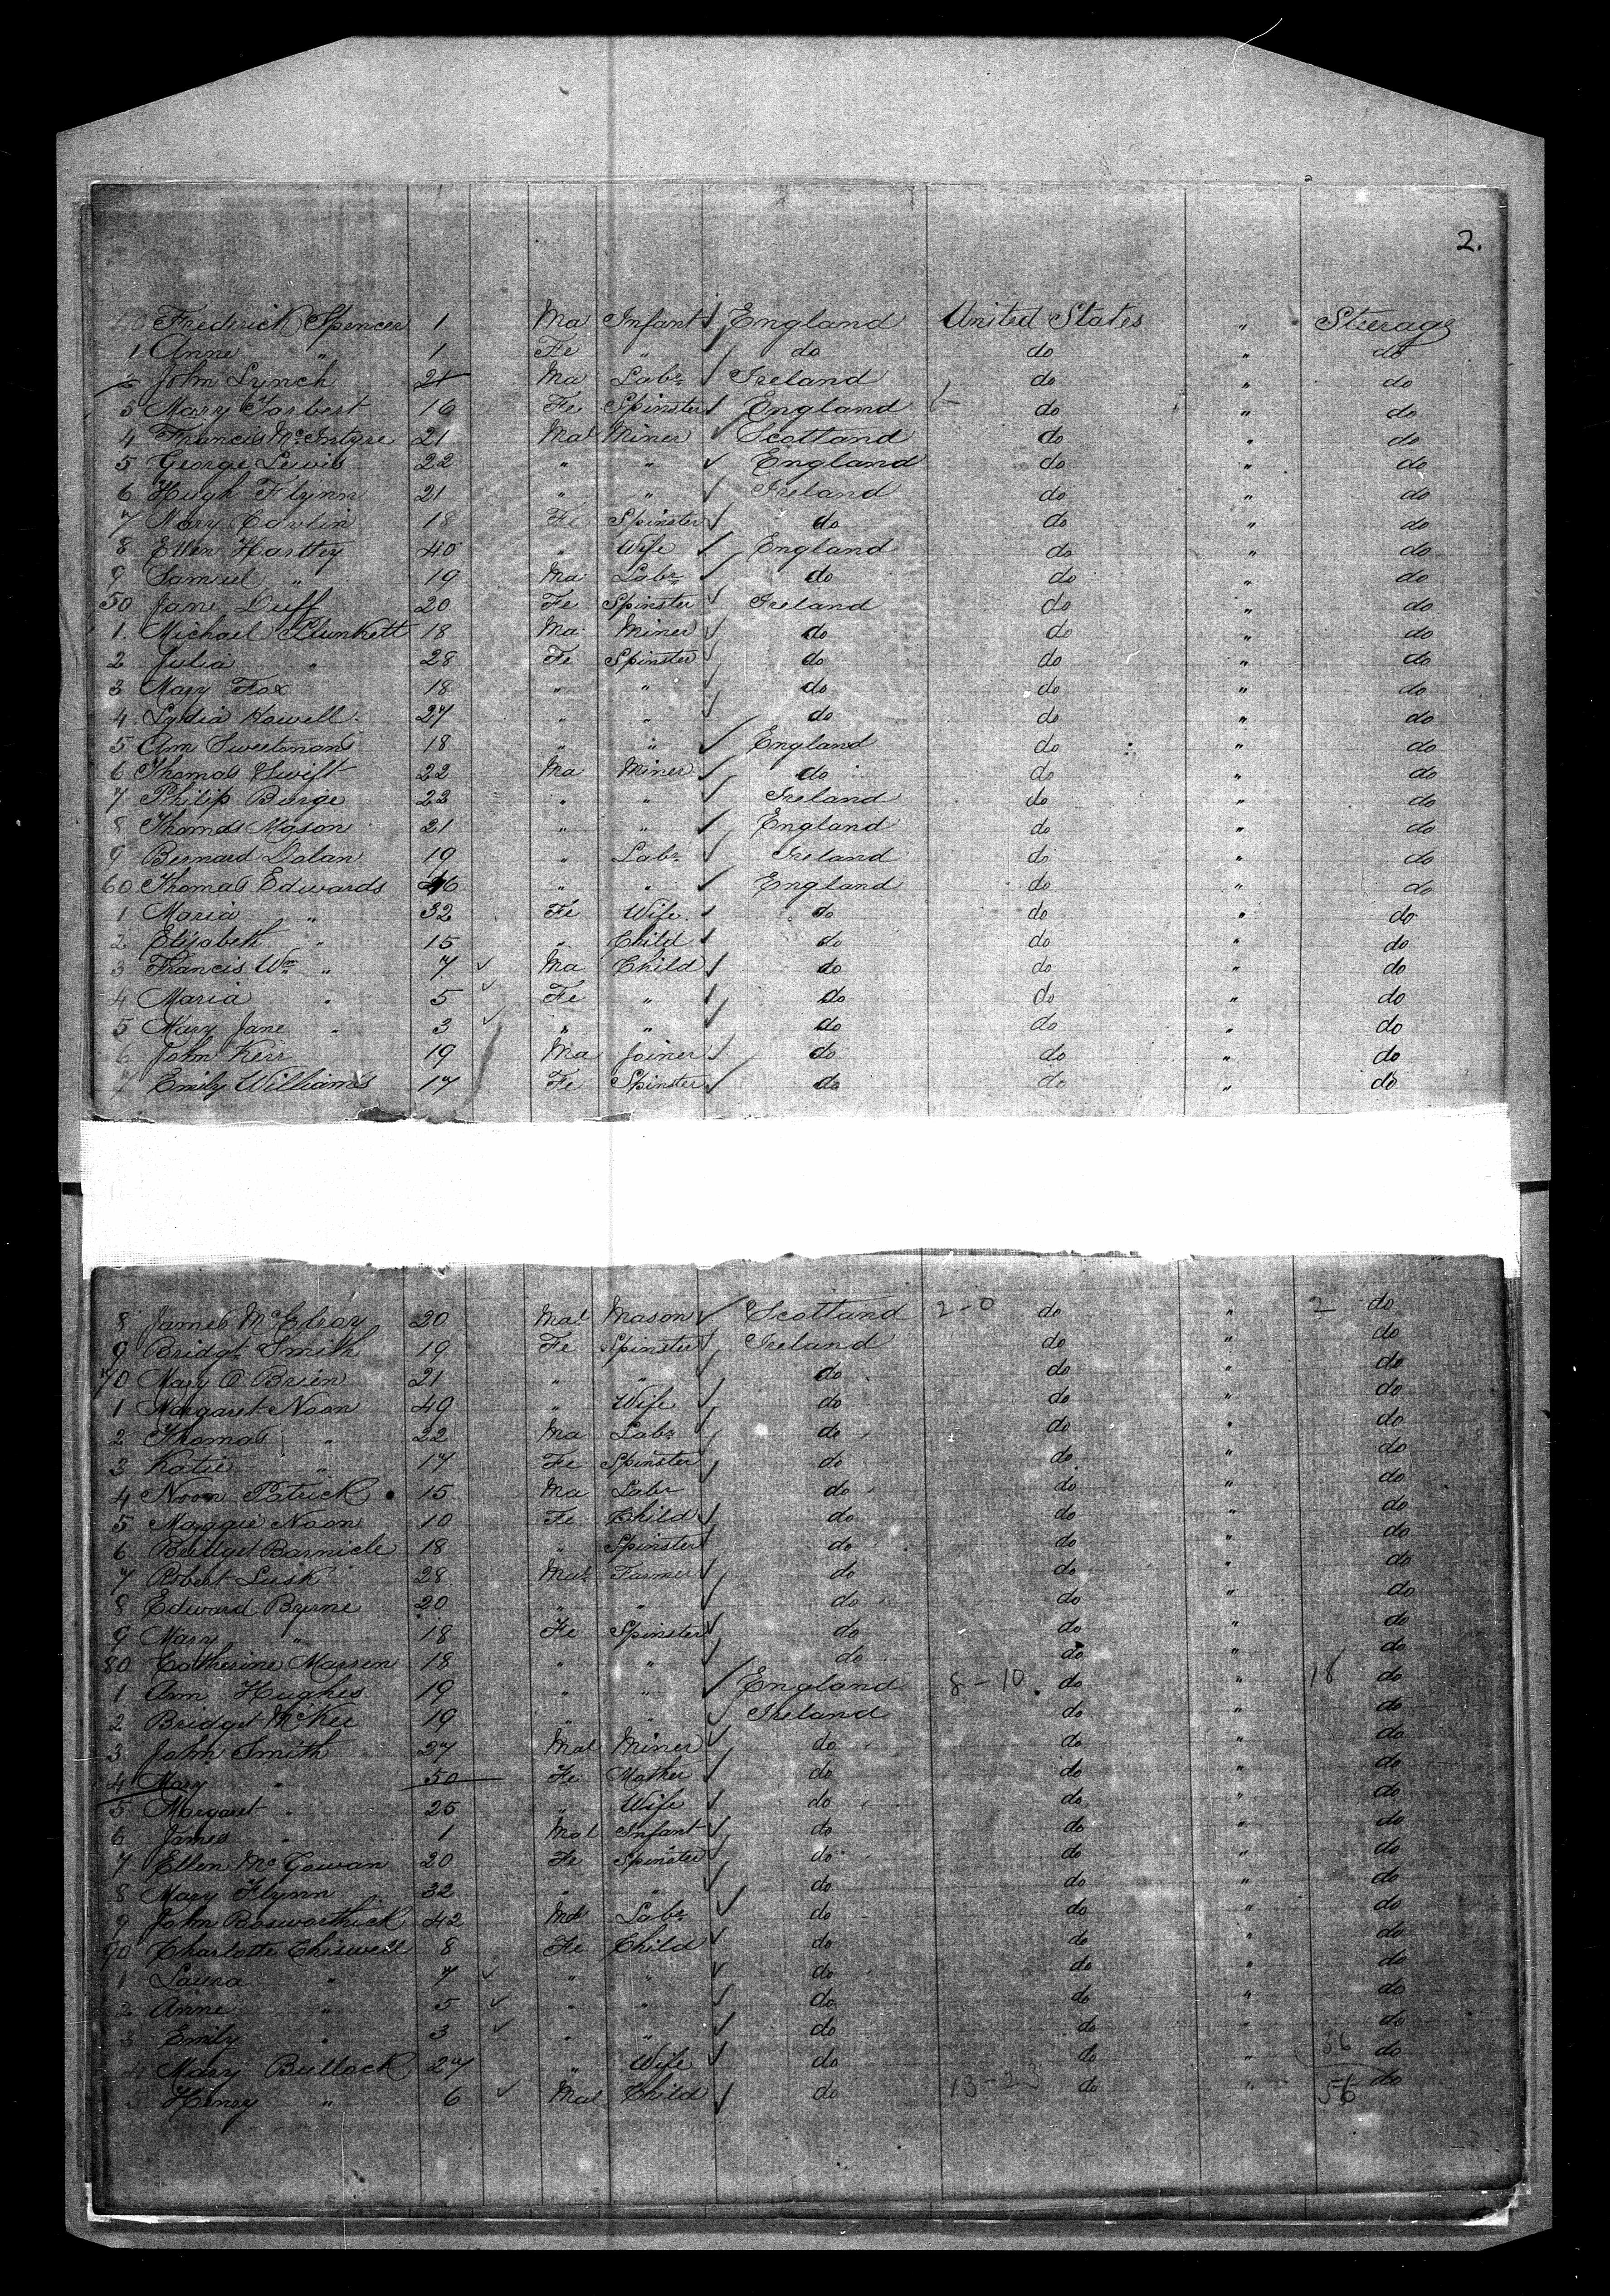 2.
40 Frederick Spencer 1 Ma Infant ✓ England United States " Steerage
1 Anne " 1 Fe " ✓ do do " do
2 John Lynch 21 Ma Labr ✓ Ireland do " do
3 Mary Torbert 16 Fe Spinster ✓ England do " do
4 Francis McIntyre 21 Mal Miner ✓ Scotland do " do
5 George Lewis 22 " " ✓ England do " do
6 Hugh Flynn 21 " " ✓ Ireland do " do
7 Mary Carlin 18 Fe Spinster ✓ do do " do
8 Ellen Hartley 40 " Wife ✓ England do " do
9 Samuel " 19 Ma Labr ✓ do do " do
50 Jane Duff 20 Fe Spinster ✓ Ireland do " do
1 Michael Plunkett 18 Ma Miner ✓ do do " do
2 Julia " 28 Fe Spinster ✓ do do " do
3 Mary Fox 18 " " ✓ do do " do
4 Lydia Howell 27 " " ✓ do do " do
5 Ann Sweetman 18 " " ✓ England do " do
6 Thomas Swift 22 Ma Miner ✓ do do " do
7 Philip Burge 22 " " ✓ Ireland do " do
8 Thomas Mason 21 " " ✓ England do " do
9 Bernard Dolan 19 " Labr ✓ Ireland do " do
60 Thomas Edwards 46 " " ✓ England do " do
1 Maria " 32 Fe Wife ✓ do do " do
2 Elisabeth " 15 " Child ✓ do do " do
3 Francis Wm " 7 ✓ Ma Child ✓ do do " do
4 Maria " 5 ✓ Fe " ✓ do do " do
5 Mary Jane " 3 ✓ " " ✓ do do " do
6 John Kerr 19 Ma Joiner ✓ do do " do
7 Emily Williams 17 Fe Spinster ✓ do do " do
8 James McElroy 20 Mal Mason ✓ Scotland 2-0 do " 2 do
9 Bridgt Smith 19 Fe Spinster ✓ Ireland do " do
70 Mary O Brien 21 " " ✓ do do " do
1 Margaret Noon 49 " Wife ✓ do do " do
2 Thomas " 22 Ma Labr ✓ do do " do
3 Katie " 17 Fe Spinster ✓ do do " do
4 Noon Patrick 15 Ma Labr do do " do
5 Maggie Noon 10 Fe Child ✓ do do " do
6 Bridget Barnicle 18 " Spinster do do " do
7 Robert Lusk 28 Mal Farmer ✓ do do " do
8 Edward Byrne 20 " " ✓ do do " do
9 Mary " 18 Fe Spinster ✓ do do " do
80 Catherine Marren 18 " " ✓ do do " do
1 Ann Hughes 19 " " ✓ England 8-10 do " 18 do
2 Bridget McKee 19 " " ✓ Ireland do " do
3 John Smith 27 Mal Miner ✓ do do " do
4 Mary " 50 Fe Mother ✓ do do " do
5 Margaret " 25 " Wife ✓ do do " do
6 James " 1 Mal Infant ✓ do do " do
7 Ellen McGowan 20 Fe Spinster ✓ do do " do
8 Mary Flynn 32 " " ✓ do do " do
9 John Bosworthick 42 Mal Labr ✓ do do " do
90 Charlotte Chiswell 8 Fe Child ✓ do do " do
1 Laura " 7 ✓ " " ✓ do do " do
2 Anne " 5 ✓ " " ✓ do do " do
3 Emily " 3 ✓ " " ✓ do do " do
4 Mary Bullock 27 " Wife ✓ do do " 36 do
5 Henry " 6 ✓ Mal Child ✓ do 13-23 do " 56 do